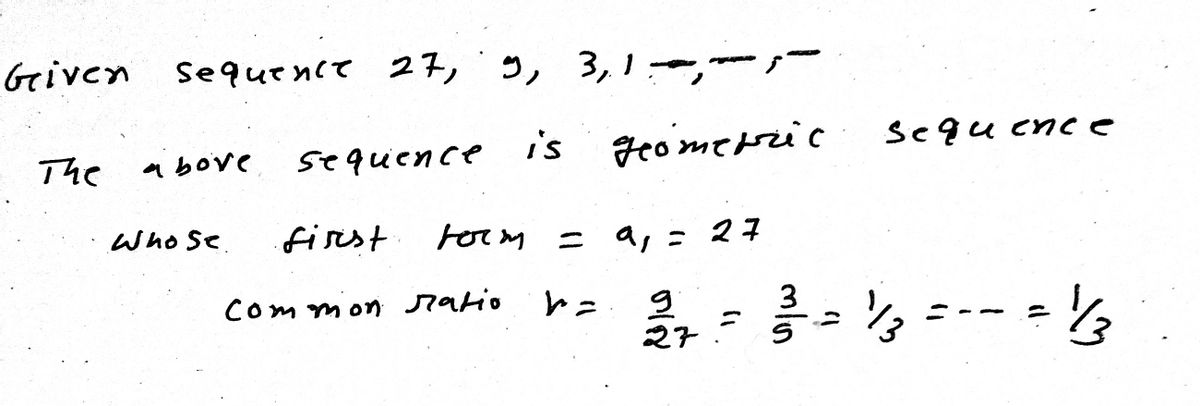 Given sequence 27, 9, 3, 1 —, —, —
The above sequence is geometric sequence
whose first term = a₁ = 27
common ratio r = 9/27 = 3/9 = 1/3 = --- = 1/3